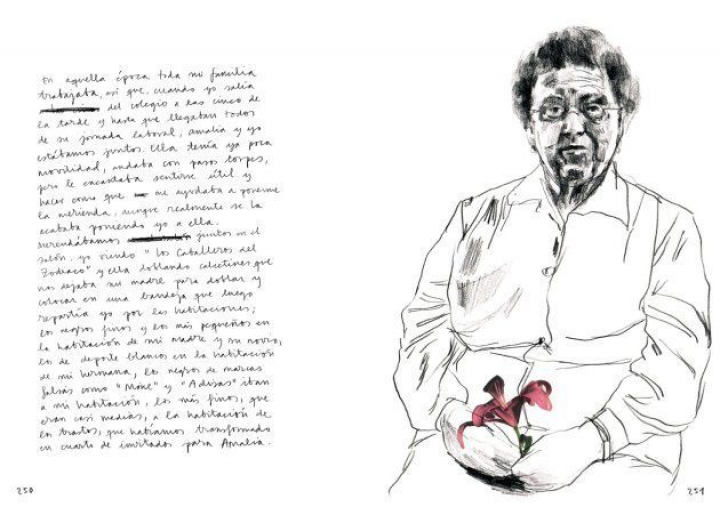 En aquella época toda mi familia
trabajaba, así que, cuando yo salía
del colegio a las cinco de
la tarde y hasta que llegaban todos
de su jornada laboral, Amalia y yo
estábamos juntos. Ella tenía ya poca
movilidad, andaba con pasos torpes,
pero le encantaba sentirse útil y
hacer como que me ayudaba a ponerme
la merienda, aunque realmente se la
acababa poniendo yo a ella.
Merendábamos juntos en el
salón, yo viendo "Los Caballeros del
Zodiaco" y ella doblando calcetines que
nos dejaba mi madre para doblar y
colocar en una bandeja que luego
repartía yo por las habitaciones;
los negros finos y los más pequeños en
la habitación de mi madre y su novio,
los de deporte blancos en la habitación
de mi hermana, los negros de marcas
falsas como "Mike" y "Adisas" iban
a mi habitación, los más finos, que
eran casi medias, a la habitación de
los trastos, que habíamos transformado
en cuarto de invitados para Amalia.
250
251